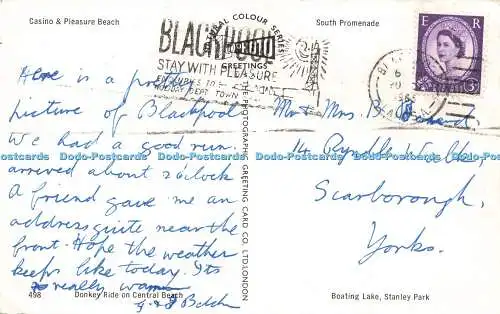 Casino & Pleasure Beach
South Promenade
Here is a pretty
picture of Blackpool
We had a good run.
arrived about 2 o'clock
A friend gave me an
address quite near the
front. Hope the weather
keeps like today. Its
really warm
498
Donkey Ride on Central Beach
NATURAL COLOUR SERIES
GREETINGS
THE PHOTOGRAPHIC GREETING CARD CO. LTD. LONDON
BLACKPOOL
STAY WITH PLEASURE
ENQUIRIES TO
HOLIDAY DEPT TOWN
E R
Mr & Mrs B.
14 Ryndle Walk,
Scarborough,
Yorks.
Boating Lake, Stanley Park
Dodo-Postcards Dodo-Postcards Dodo-Postcards Dodo-Postcards Dodo-Postcards Dodo-Postcards